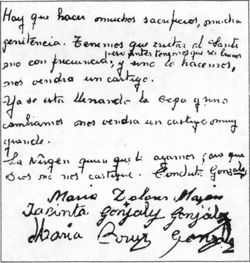 Hay que hacer muchos sacrificios, mucha
penitencia. Tenemos que visitar al Santisi
mo con frecuencia, pero antes tenemos que ser buenos
y si no lo hacemos,
nos vendrá un castigo.
Ya se está llenando la copa y si no
cambiamos nos vendrá un castigo muy
grande.
La Virgen quiere que lo hagamos, para que
Dios no nos castigue. Conchita González
María Dolores Mazón
Jacinta González González
María Cruz González